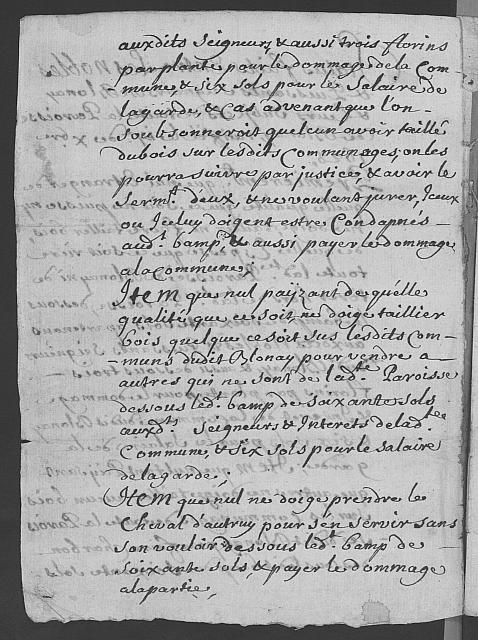 auxdits Seigneurs, & aussi trois florins
par plante pour le dommage de la Com-
mune, & six sols pour le Salaire de
la garde, & Cas advenant que l'on
soubsonneroit quelcun avoir taillé
du bois sur lesdits Communages, on les
pourra suivre par justice, & avoir le
Serm.t deux, & ne voulant jurer, Iceux
ou Iceluy doigent estre Condapnés
aud.t bamp, & aussi payer le dommage
a la Commune,
Item que nul paijzant de quélle
qualité que ce soit, ne doige taillier
bois quelque ce soit sus lesdits Com-
muns dudit Blonay pour vendre a
autres qui ne sont de lad.te Paroisse
dessous led.t bamp de soixante sols
auxd.ts Seigneurs & Interets de lad.te
Commune, & six sols pour le salaire
de la garde,;
Item que nul ne doige prendre le
Cheval d'autruy pour s'en servir sans
son vouloir dessous led.t bamp de
soixante sols, & payer le dommage
a la partie,